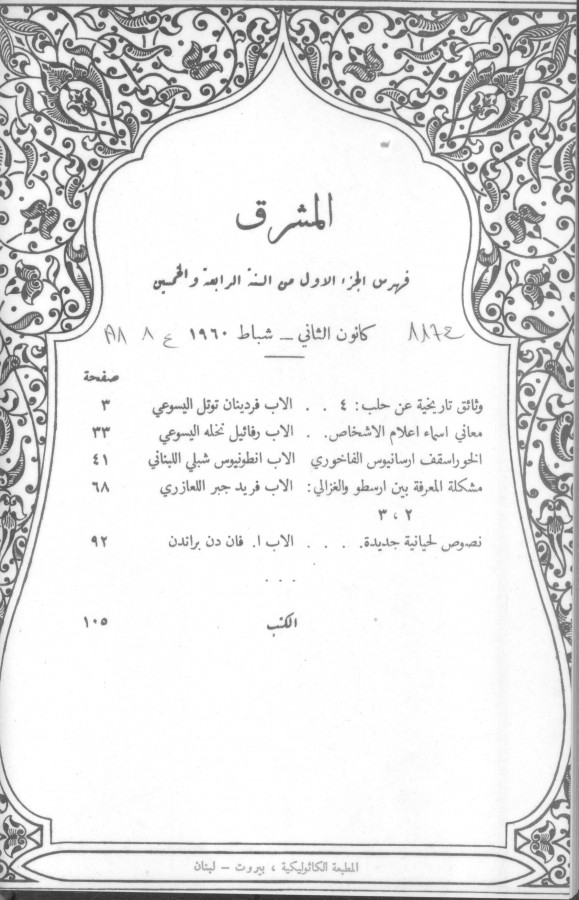 المشرق
فهرس الجزء الاول من السنة الرابعة والخمسين
كانون الثاني – شباط ١٩٦٠
صفحة
وثائق تاريخية عن حلب: ٤ . . الاب فردينان توتل اليسوعي ٣
معاني اسماء اعلام الاشخاص. . الاب رفائيل نخله اليسوعي ٣٣
الخوراسقف ارسانيوس الفاخوري الاب انطونيوس شبلي اللبناني ٤١
مشكلة المعرفة بين ارسطو والغزالي: الاب فريد جبر اللعازري ٦٨
٢ ، ٣
نصوص لحيانية جديدة. . . . . الاب ا. فان دن براندن ٩٢
. . .
الكتب ١٠٥
المطبعة الكاثوليكية ، بيروت – لبنان